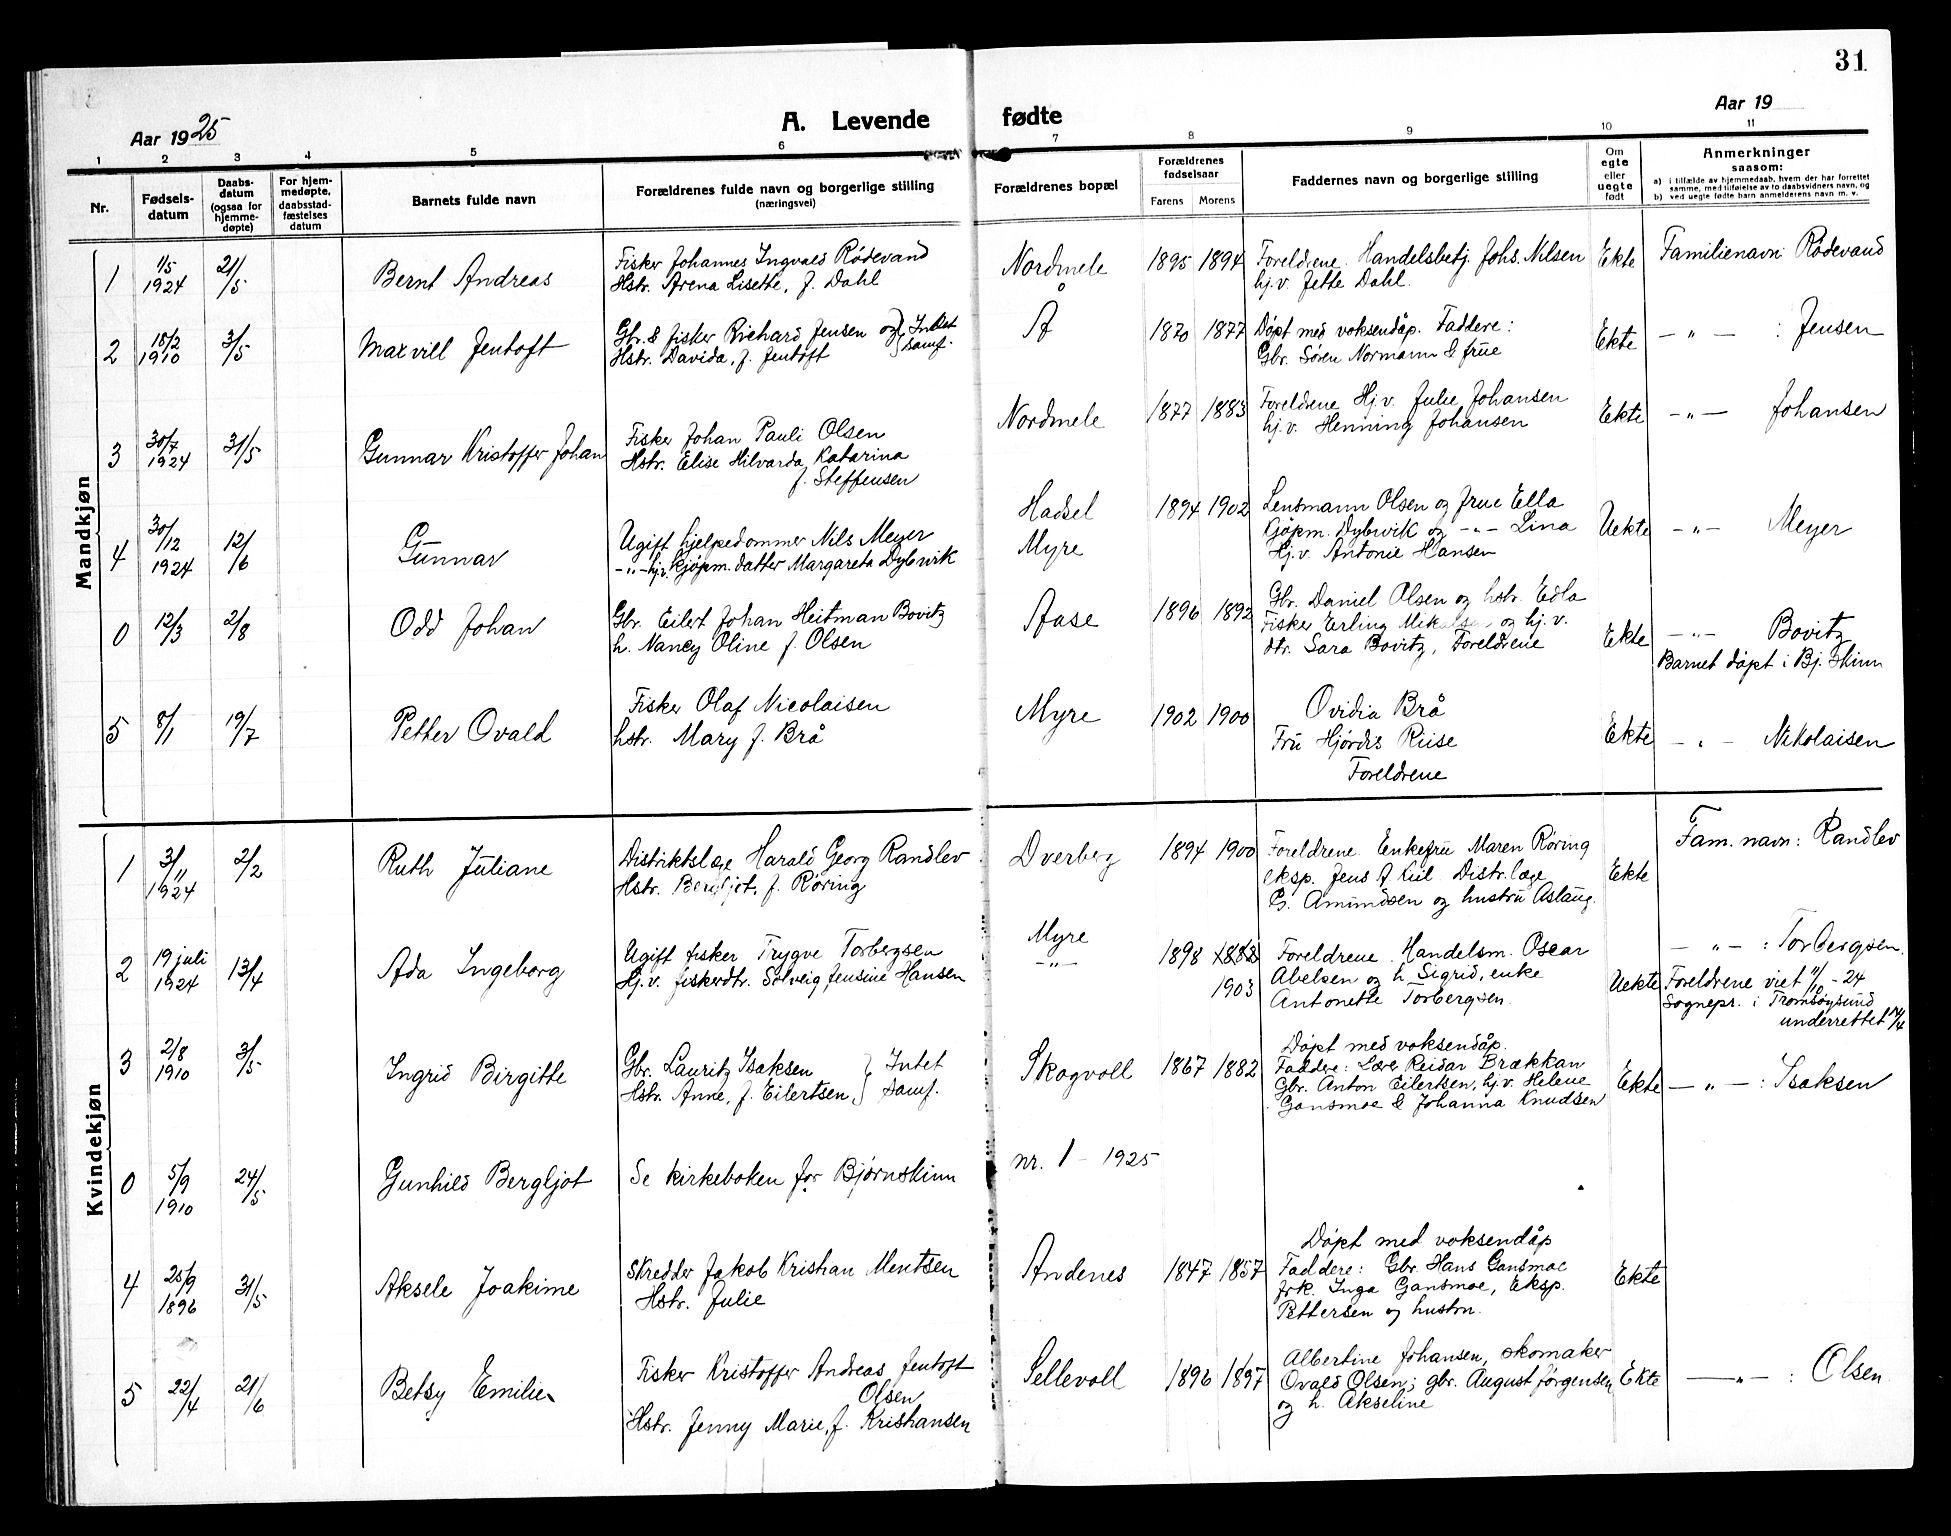 31
Aar 1925
A. Levende fødte
Aar 19
1 2 3 4 5 6 7 8 9 10 11
Nr.
Fødsels-
datum
Daabs-
datum
(ogsaa for
hjemme-
døpte)
For hjem-
medøpte,
daabsstad-
fæstelses
datum
Barnets fulde navn
Forældrenes fulde navn og borgerlige stilling
(næringsvei)
Forældrenes bopæl
Forældrenes
fødselsaar
Farens Morens
Faddernes navn og borgerlige stilling
Om
egte
eller
uegte
født
Anmerkninger
saasom:
a) i tilfælde av hjemmedaab, hvem der har forrettet
samme, med tilføielse av to daabsvidners navn, og
b) ved uegte fødte barn anmelderens navn m. v.
Mandkjøn
1
1/5
1924
21/5
Bernt Andreas
Fisker Johannes Ingvald Rødevand
Hstr. Arena Lisette, f. Dahl
Nordmele
1895 1894
Foreldrene. Handelsbetj. Johs. Nilsen
hj.v. Jette Dahl.
Ekte
Familienavn: Rødevand
2
18/2
1910
3/5
Maxvill Jentoft
Gbr. & fisker Richard Jensen og } Intet
Hstr. Davida, f. Jentoft } samf.
Å
1870 1877
Døpt med voksendåp. Faddere:
Gbr. Søren Normann & frue
Ekte
— " — : Jensen
3
30/7
1924
31/5
Gunnar Kristoffer Johan
Fisker Johan Pauli Olsen
Hstr. Elise Hilvarda Katarina
f. Steffensen
Nordmele
1877 1883
Foreldrene Hj.v. Julie Johansen
hj.v. Henning Johansen
Ekte
— " — Johansen
4
30/12
1924
12/6
Gunnar
Ugift hjelpedommer Nils Meyer
— " — hj.v. kjøpm. datter Margareta Dybwik
Hadsel
Myre
1894 1902
Lensmann Olsen og frue Ella
Kjøpm. Dybwik og — " — Lina
Hj.v. Antonie Hansen
Uekte
— " — Meyer
0
12/3
2/8
Odd Johan
Gbr. Eilert Johan Heitman Bovitz
h. Nancy Oline f. Olsen
Aase
1896 1892
Gbr. Daniel Olsen og hstr. Edla
Fisker Erling Mikalsen og hj.v.
dtr. Sara Bovitz, Foreldrene
Ekte
— " — Bovitz
Barnet døpt i Bj. skinn
5
8/1
19/7
Petter Ovald
Fisker Olaf Nicolaisen
hstr. Mary f. Brå
Myre
1902 1900
Ovidia Brå
Fru Hjørdis Riise
Foreldrene
Ekte
— " — Nikolaisen
Kvindekjøn
1
3/11
1924
2/2
Ruth Juliane
Distriktslæge Harald Georg Randlev
Hstr. Bergljot, f. Røring
Dverberg
1894 1900
Foreldrene. Enkefru Maren Røring
eksp. Jens A Kiil Distr. læge
G. Amundsen og hustru Aslaug.
Ekte
Fam. navn: Randlev
2
19 juli
1924
13/4
Ada Ingeborg
Ugift fisker Trygve Torbergsen
Hj.v. fiskerdtr. Solveig Jensine Hansen
Myre
— " —
1898 1882
1903
Foreldrene. Handelsm. Oscar
Abelsen og h. Sigrid, enke
Antonette Torbergsen.
Uekte
— " — : Torbergsen.
Foreldrene viet 11/10 - 24
Sognepr. i Tromsøysund
underrettet 14/4
3
2/8
1910
3/5
Ingrid Birgitte
Gbr. Lauritz Isaksen } Intet
Hstr. Anne, f. Eilertsen, } samf.
Skogvoll
1867 1882
Døpt med voksendåp.
Faddere: Lærer Reidar Brækkan
Gbr. Anton Eilertsen, hj.v. Helene
Gansmoe & Johanna Knudsen
Ekte
— " — : Isaksen
0
5/9
1910
24/5
Gunhild Bergljot
Se kirkeboken for Bjørnskinn
nr. 1 - 1925
4
25/9
1896
31/5
Aksele Joakime
Skredder Jakob Kristian Mentsen
Hstr. Julie
Andenes
1847 1857
Døpt med voksendåp
Faddere: Gbr. Hans Gansmoe
frk. Inga Gansmoe, Eksp.
Pettersen og hustru.
Ekte
5
22/4
21/6
Betsy Emilie
Fisker Kristoffer Andreas Jentoft
Olsen
Hstr. Jenny Marie, f. Kristiansen
Sellevoll
1896 1897
Albertine Johansen, skomaker
Ovald Olsen; gbr. August Jørgensen
og h. Akseline
Ekte
— " — : Olsen